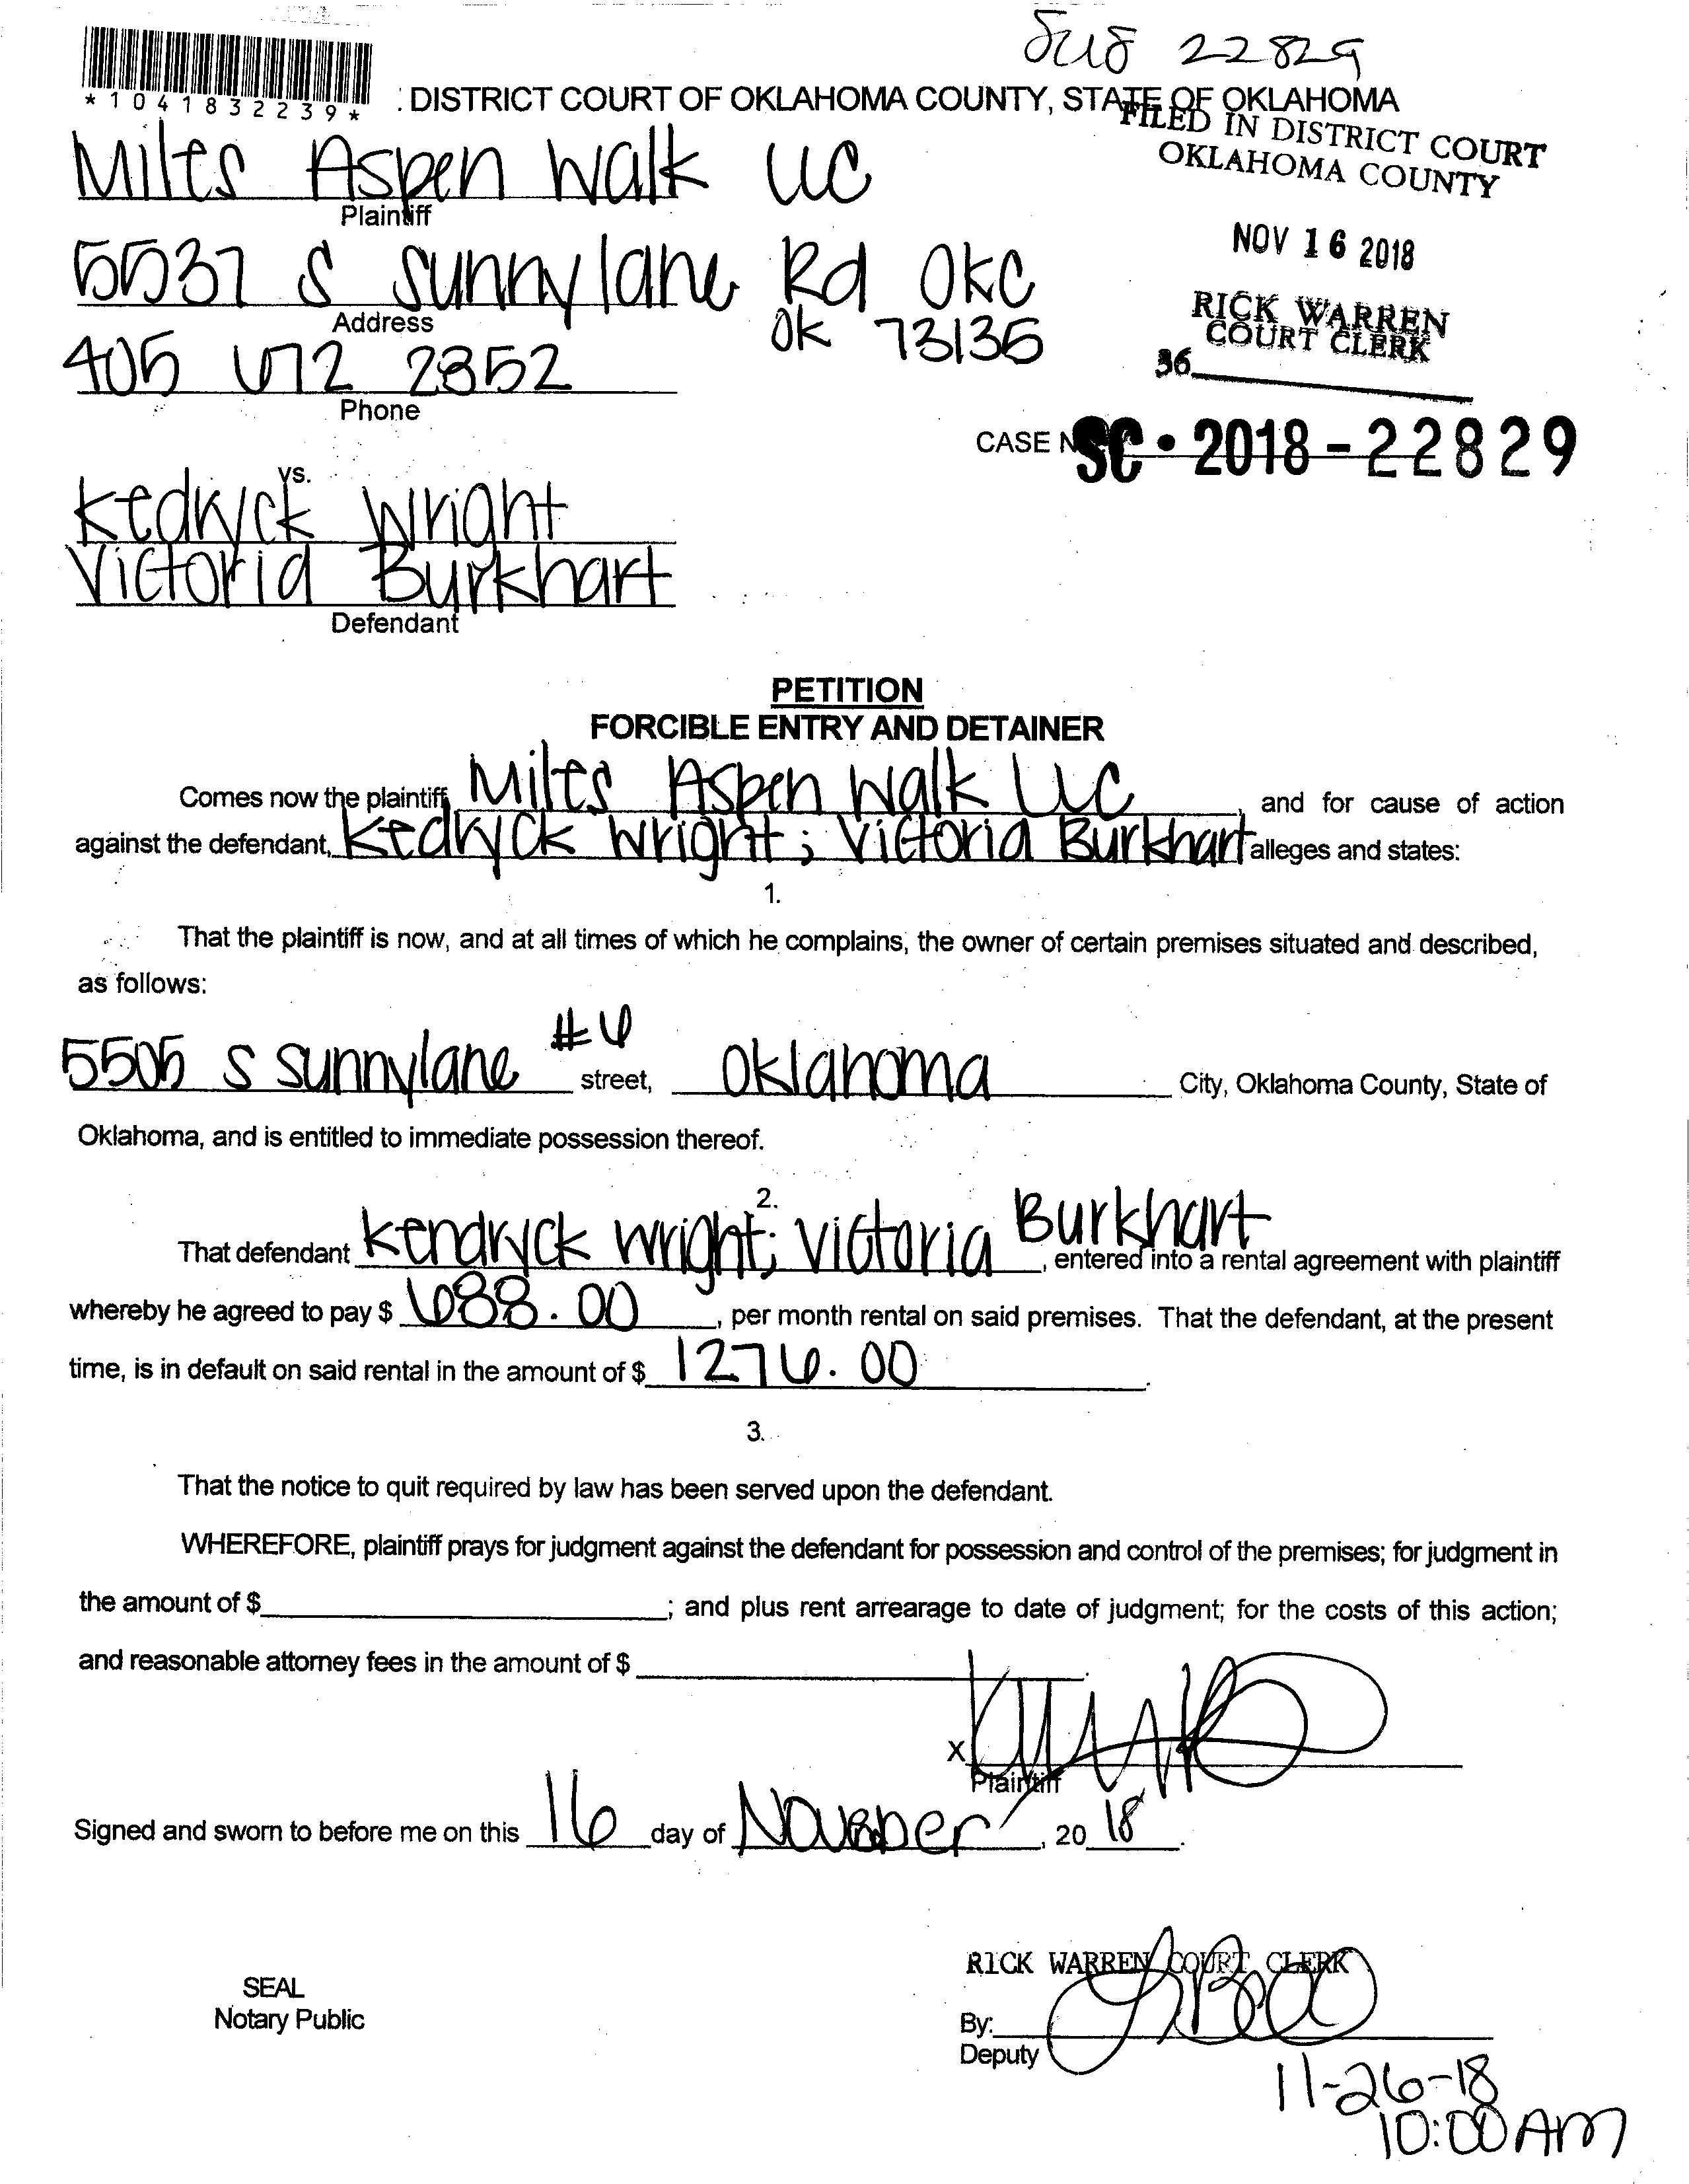 SC18 22829
*1041832239*
: DISTRICT COURT OF OKLAHOMA COUNTY, STATE OF OKLAHOMA
FILED IN DISTRICT COURT
OKLAHOMA COUNTY
Miles Aspen Walk LLC
Plaintiff
NOV 16 2018
5537 S Sunnylane Rd OKC
Address
OK 73135
RICK WARREN
COURT CLERK
36
405 672 2352
Phone
CASE NO. SC-2018-22829
vs.
Kedryck Wright
Victoria Burkhart
Defendant
PETITION
FORCIBLE ENTRY AND DETAINER
Comes now the plaintiff, Miles Aspen Walk LLC, and for cause of action
against the defendant, Kedryck Wright; Victoria Burkhart alleges and states:
1.
That the plaintiff is now, and at all times of which he complains, the owner of certain premises situated and described,
as follows:
5505 S Sunnylane #6 street, Oklahoma City, Oklahoma County, State of
Oklahoma, and is entitled to immediate possession thereof.
2.
That defendant Kendryck Wright; Victoria Burkhart, entered into a rental agreement with plaintiff
whereby he agreed to pay $ 688.00, per month rental on said premises. That the defendant, at the present
time, is in default on said rental in the amount of $ 1276.00.
3.
That the notice to quit required by law has been served upon the defendant.
WHEREFORE, plaintiff prays for judgment against the defendant for possession and control of the premises; for judgment in
the amount of $ ; and plus rent arrearage to date of judgment; for the costs of this action;
and reasonable attorney fees in the amount of $ .
X
Plaintiff
Signed and sworn to before me on this 16 day of November, 20 18.
RICK WARREN COURT CLERK
SEAL
Notary Public
By:
Deputy
11-26-18
10:00 AM